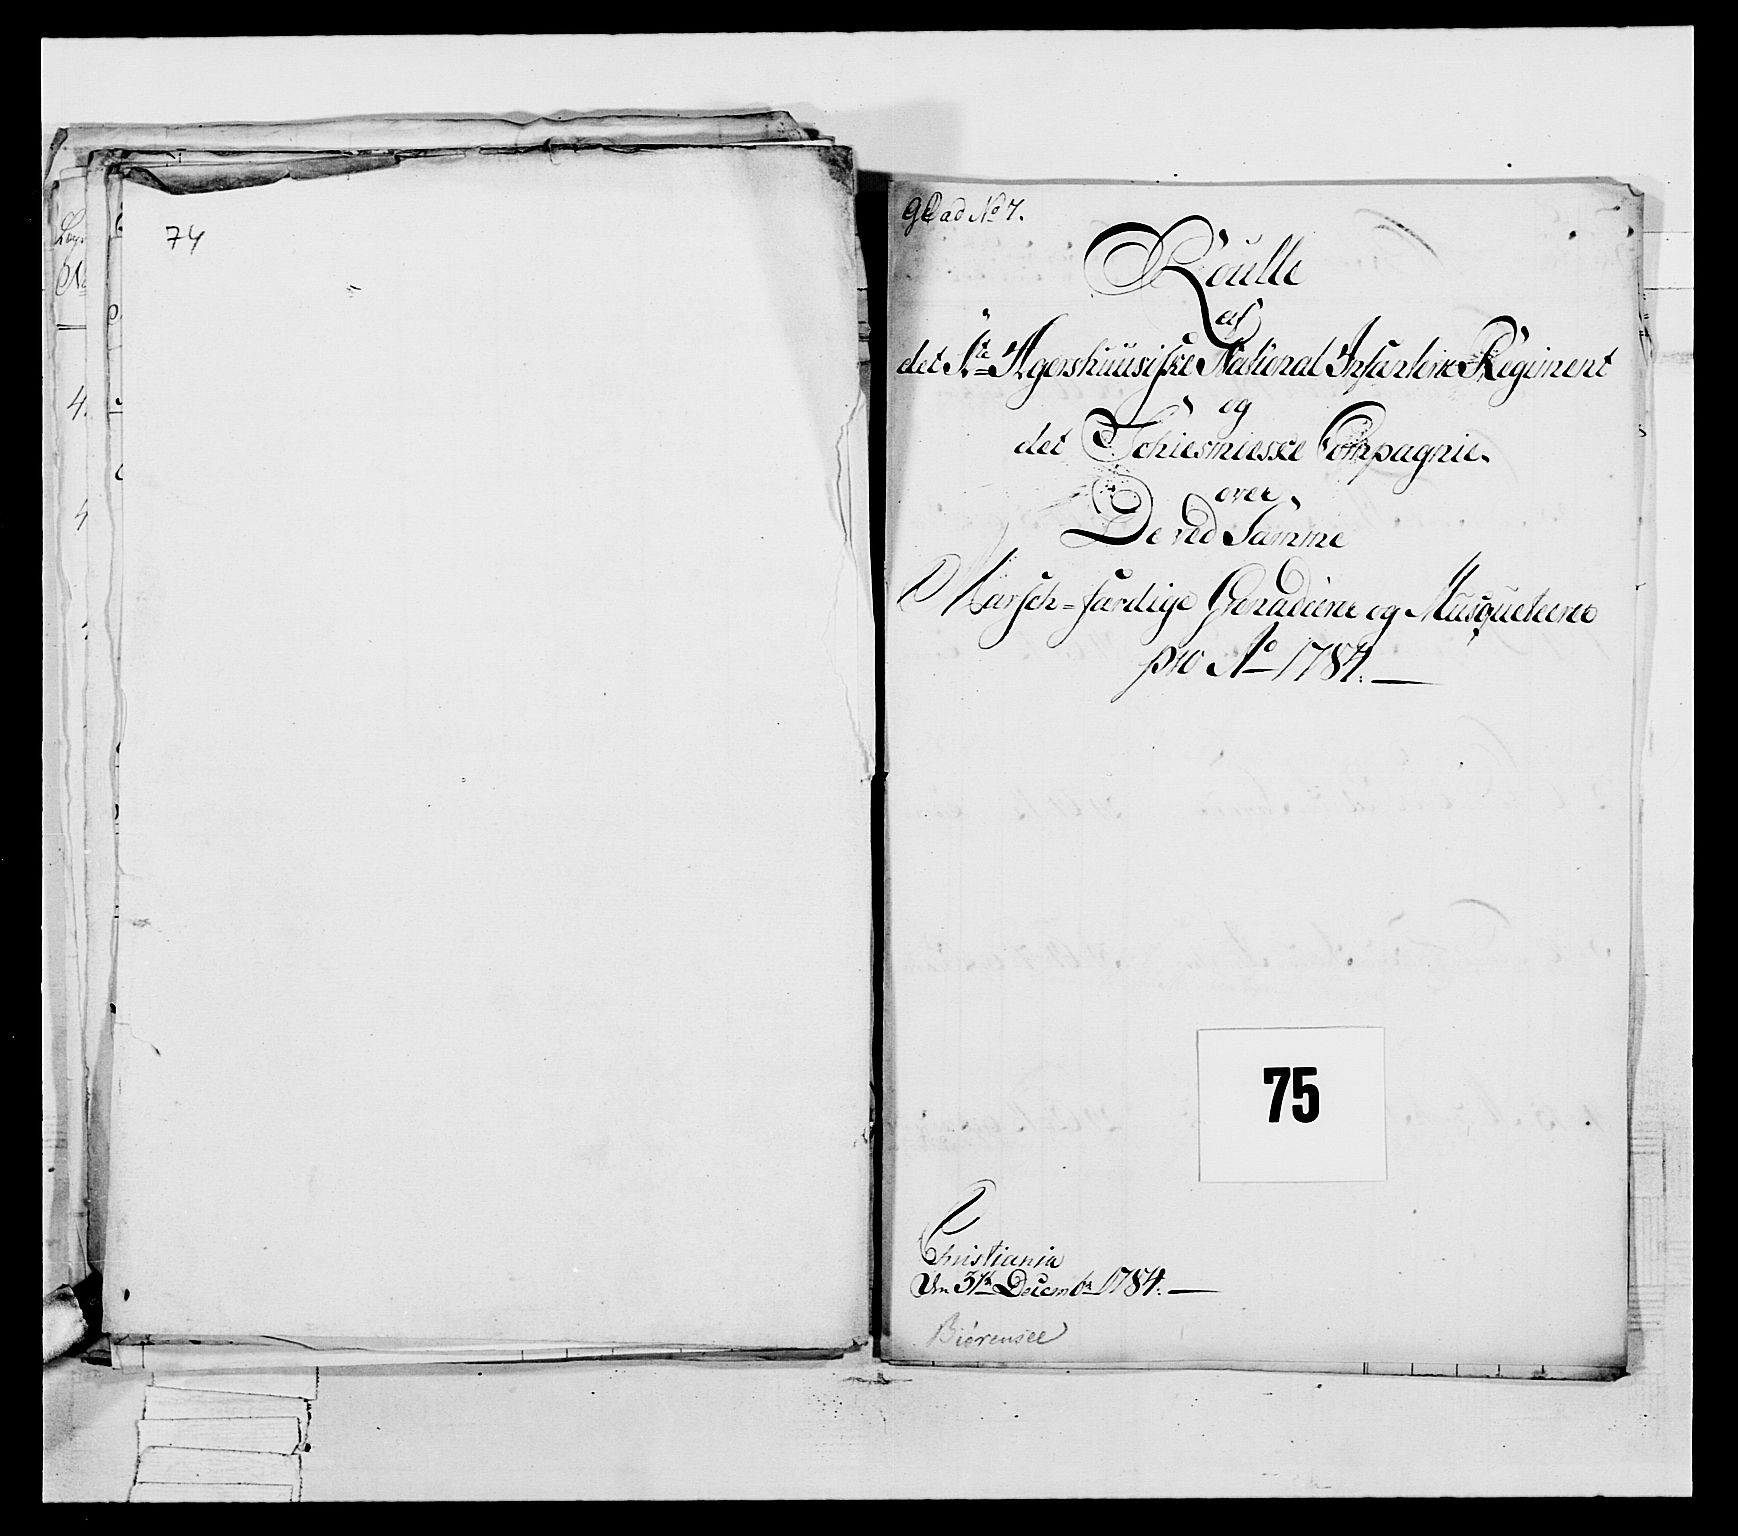 74
ad No 7.
Roulle
af
det 1te Agershuusiske National Infanterie Regiment
og
det Schiesmieske Compagnie
over
De ved Samme
Marsch-færdige Grenaderer og Musqueterer
pro Ao 1784.
75
Christiania
31te Decembr 1784.
Bierensee